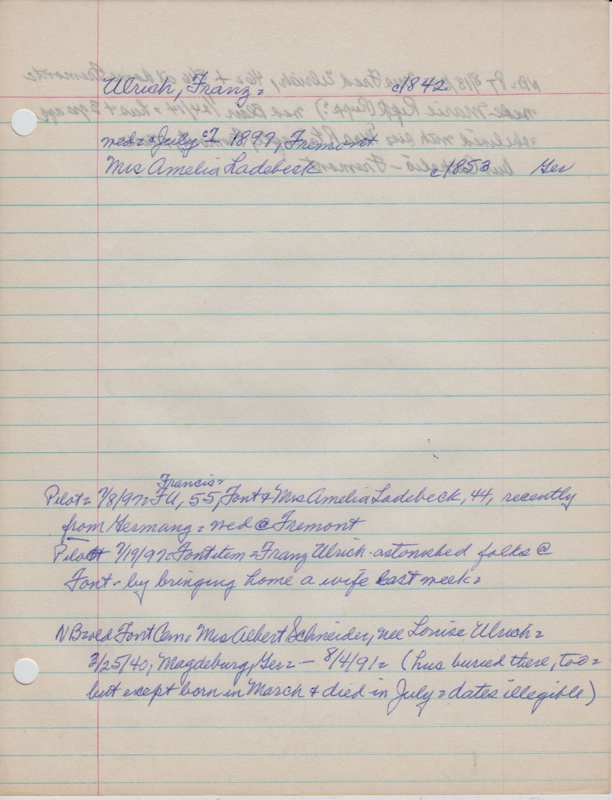 Ulrich, Franz= c1842
wed= July c7 1897, Fremont
Mrs Amelia Ladebeck c1853 Ger
Francis=
Pilot= 7/8/97= FU, 55, Font & Mrs Amelia Ladebeck, 44, recently
from Germany= wed @ Fremont
Pilot 7/19/97= Font item= Franz Ulrich astonished folks @
Font- by bringing home a wife last week=
NB=old Font Cem= Mrs Albert Schneider, nee Louise Ulrich=
3/25/40, Magdeburg, Ger= - 8/4/91= (hus buried there, too=
but except born in March & died in July= dates illegible)